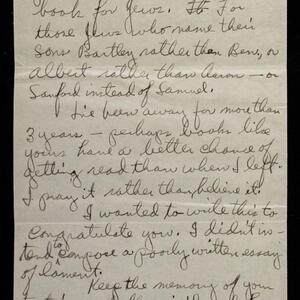 book for Jews. For
those Jews who name their
sons Bartley rather than Bene, or
Albert rather than Aaron – or
Sanford instead of Samuel.
I've been away for more than
3 years – perhaps books like
yours have a better chance of
getting read than when I left.
I pray it rather than believe it.
I wanted to write this to
congratulate you. I didn't in-
tend to compose a poorly written essay
of lament.
Keep the memory of your